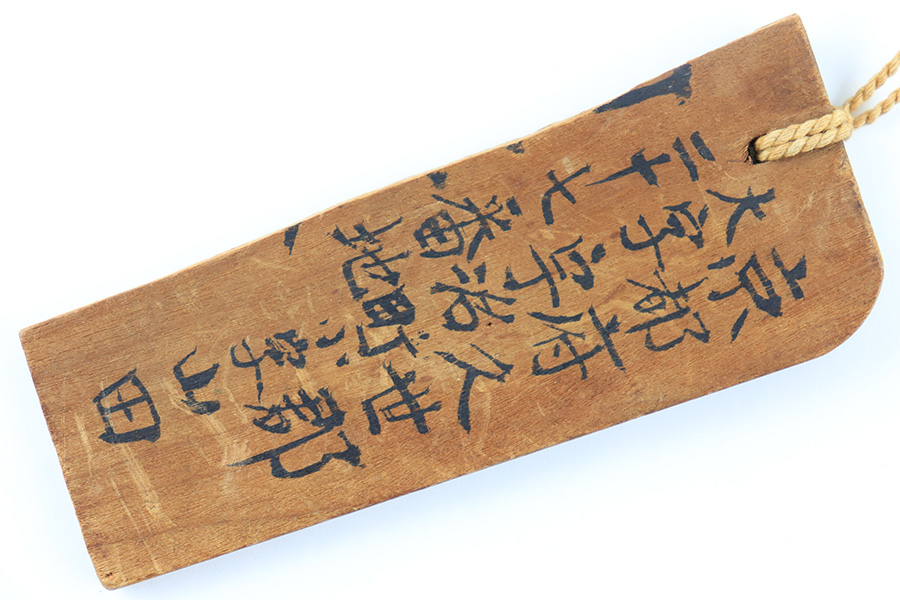 京都府久世郡
大字宇治町小字山田
二十七番地